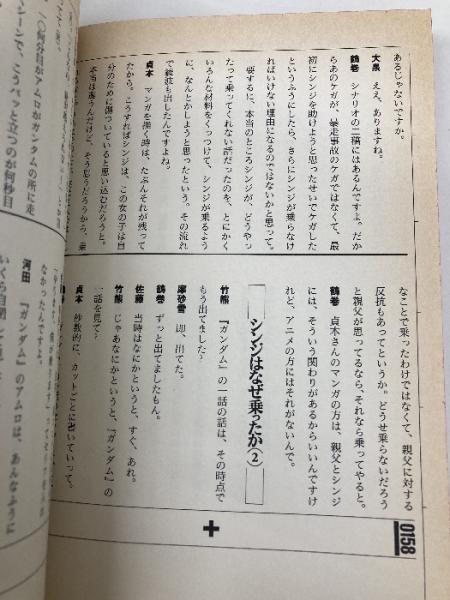 あるじゃないですか。
大泉 ええ、ありますね。
鶴巻 シナリオの二稿にはあるんですよ、だか
らあのケガが、暴走事故のケガではなくて、最
初にシンジを助けようと思ったせいでケガした
というふうにしたら、さらにシンジが乗らなけ
ればいけない理由になるのではないかと思って。
要するに、本当のところシンジが、どうやっ
たって乗ってくれない話だったのを、とにかく
いろんな材料をくっつけて、シンジが乗るよう
に、なんとかしようと思ったという。その流れ
で綾波も出したんですよね。
貞本 マンガを描く時は、たぶんそれが残って
たから。こうすればシンジは、この女の子は自
分のために傷ついていると思い込むだろうと。
本当は違うんだけど、そう思うだろうから、乗
なことで乗ったわけではなくて、親父に対する
反抗もあってというか。どうせ乗らないだろう
と親父が思ってるなら、それなら乗ってやると。
鶴巻 貞本さんのマンガの方は、親父とシンジ
には、そういう関わりがあるからいいんですけ
れど、アニメの方にはそれがないんで。
シンジはなぜ乗ったか(2)
竹熊 『ガンダム』の一話の話は、その時点で
もう出てました?
摩砂雪 即、出てた。
鶴巻 ずっと出てましたもん。
佐藤 当時はなにかというと、すぐ、あれ。
竹熊 じゃあなにかというと、『ガンダム』の
一話を見て?
貞本 秒数的に、カットごとに書いていって。
0158
〇何分目がアムロがガンダムの所に走
シーンで、こうパッと立つのが何秒目
なかったんですよ。
河田 『ガンダム』のアムロは、あんなように